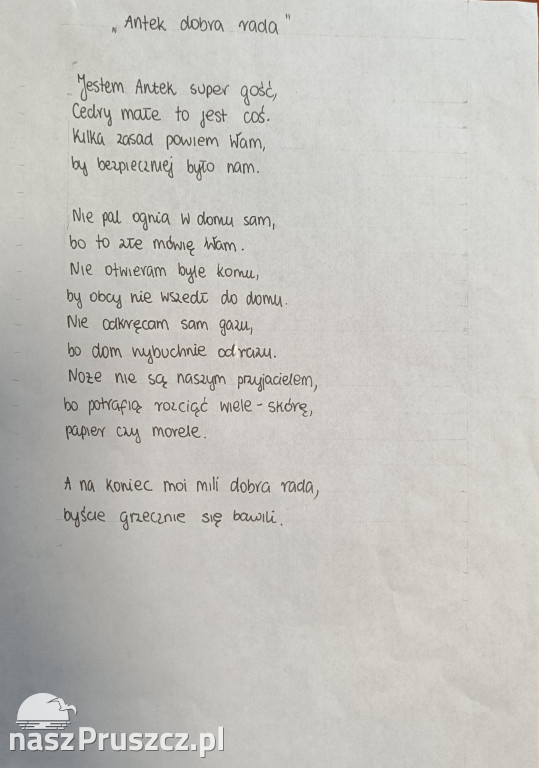 „Antek dobra rada"
Jestem Antek super gość,
Cedry małe to jest coś.
Kilka zasad powiem Wam,
by bezpieczniej było nam.
Nie pal ognia w domu sam,
bo to złe mówię Wam.
Nie otwieram byle komu,
by obcy nie wszedł do domu.
Nie odkręcam sam gazu,
bo dom wybuchnie odrazu.
Noże nie są naszym przyjacielem,
bo potrafią rozciąć wiele - skórę,
papier czy morele.
A na koniec moi mili dobra rada,
byście grzecznie się bawili.
naszPruszcz.pl